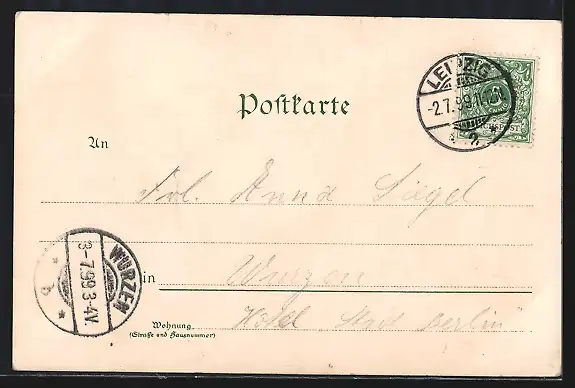 LEIPZIG
-2.7.99.11-12N.
* 2 *
Postkarte
An
Frl. Anna Siegel
WURZEN
3-7.99.3-4V.
* b *
in Wurzen
Wohnung
(Straße und Hausnummer)
Hotel Stadt Berlin"